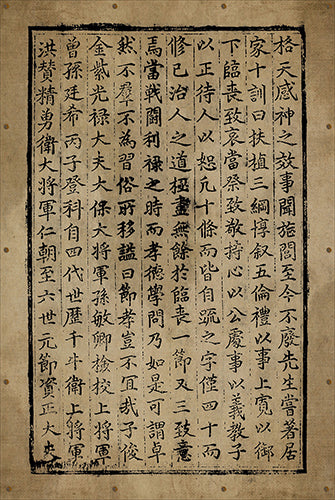 格天感神之效事聞旌閭至今不廢先生嘗著居
家十訓曰扶植三綱惇叙五倫禮以事上寬以御
下臨喪致哀當祭致敬持心以公處事以義教子
以正待人以恕凡十條而皆自䟽之字僅四十而
修己治人之道極盡無餘於臨喪一節又三致意
焉當戰鬪利祿之時而孝德學問乃如是可謂卓
然不羣不為習俗所移謚曰節孝豈不宜哉子俊
金紫光祿大夫大保大將軍孫敏卿檢校上將軍
曾孫廷希丙子登科自四代世歷千牛衛上將軍
洪贊精勇衛大將軍仁朝至六世元節資正大夫